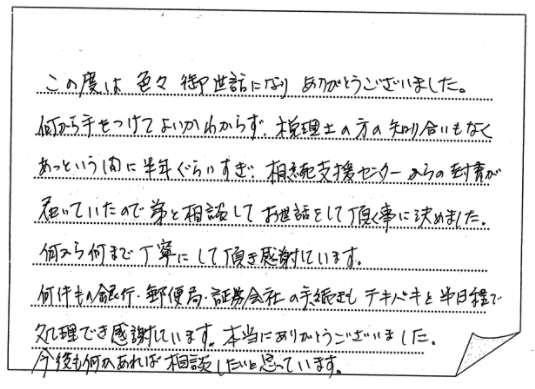 この度は色々御世話になりありがとうございました。
何から手をつけてよいかわからず、税理士の方の知り合いもなく
あっという間に半年ぐらいすぎ、相続支援センターからの封書が
届いていたので弟と相談してお世話をして頂く事に決めました。
何から何まで丁寧にして頂き感謝しています。
何件もの銀行・郵便局・証券会社の手続きもテキパキと半日程で
処理でき感謝しています。本当にありがとうございました。
今後も何かあれば相談したいと思っています。